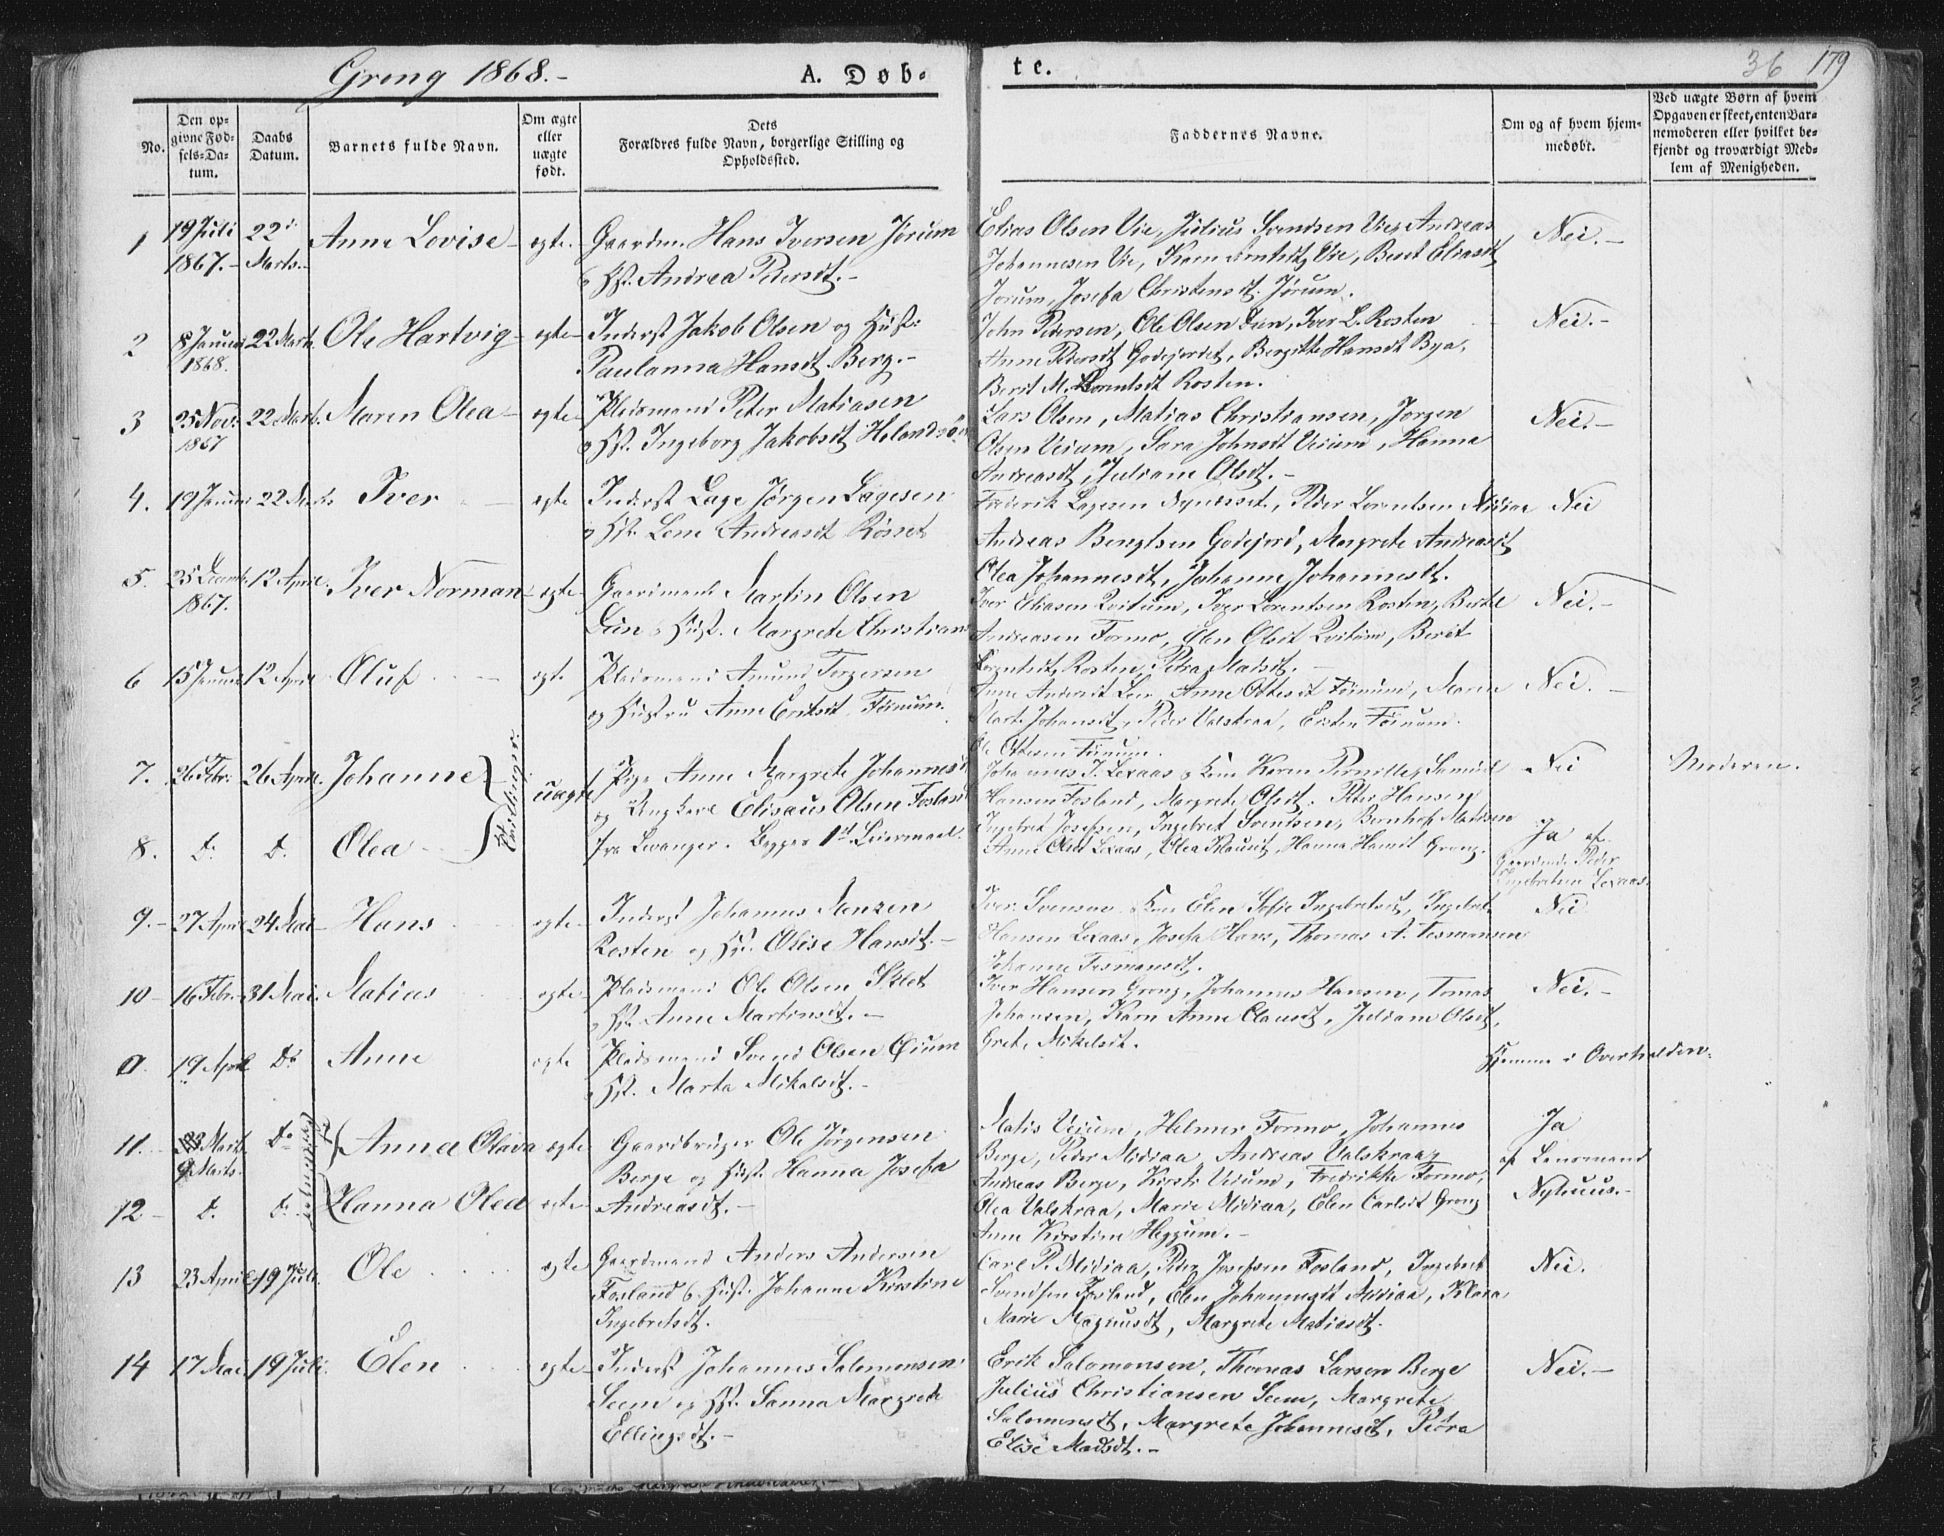 Grong 1868.-
A. Døb-
te.
36 179
No.
Den op-
givne Fød-
sels-Da-
tum.
Daabs
Datum.
Barnets fulde Navn.
Om ægte
eller
uægte
født.
Dets
Forældres fulde Navn, borgerlige Stilling og
Opholdssted.
Faddernes Navne.
Om og af hvem hjem-
medøbt.
Ved uægte Børn af hvem
Opgaven er skeet, enten Bar-
nemoderen eller hvilket be-
kjendt og troværdigt Med-
lem af Menigheden.
1 19 Juli 22 Anne Lovise egte. Gaardm. Hans Iversen Jørum
1867.- Marts.-
Hst. Andrea Pedersdt.-
Elias Olsen Vie, Julius Svendsen Vie, Andreas
Johannesen Vie, Karn Arntsdt Vie, Beret Eliasdt
Jørum, Josefa Christensdt. Jørum.
Nei.-
2 8 Januar 22 Marts Ole Hartvig egte Inderst Jakob Olsen og Hust:
1868.
Paulanna Hansdt Berg.-
John Pedersen, Ole Olsen Dun, Iver L. Rosten
Anne Pedersdt Godejordet, Bergitte Hansdt Bya,
Berit M. Lorentsdt Rosten.
Nei.-
3 25 Nov: 22 Marts. Maren Olea egte Pladsmand Peter Matiasen
1867
Hst. Ingeborg Jakobsdt
Lars Olsen, Matias Christiansen, Jørgen
Olsen Veium, Sara Johnsdt Veium, Hanna
Andreasdt, Juliane Olsdt.-
Nei.-
4. 19 Januar 22 Marts Iver egte Inderst Lage Jørgen Lagesen
Hst. Lene Andreasdt Rosset
Frederik Lagesen, Peder Lorentsen Midiaa
Andreas Bengtsen Godejord, Margrete Andreasdt
Olea Johannesdt, Johanne Johannesdt.
Nei
5. 25 Decemb. 12 April. Iver Norman egte Gaardmand Martin Olsen
1867.
Dun Hust. Margrete Christians
Iver Eliasen Kvitum, Iver Lorentsen Rosten, Bertel
Andreasen Formo, Elen Olsdt Kvitum, Berit
Lorentsdt, Rosten, Petra Madsdt.-
Nei.-
6 15 Januar 12 April Oluf egte Pladsmand Amund Torgersen
og Hustru Anne Eriksdt. Fornum.
Anne Andersdt, Anne Ottesdt, Maren
Marte Johansdt, Peder Valskraa,
Ole Ottesen
Nei.-
7. 26 Febr. 26 April. Johanne
Tvillinger.
uægte Pige Anne Margrete Johannesdt
og Ungkarl Elisæus Olsen Fosland
fra Levanger. Begges 1st Leiermaal.
Johannes J. Lexaas Kone Karen Pernille, Samuel
Hansen Fosland, Margrete Olsdt. Peter Hansen
Ingebret Josefsen, Ingebret Svendsen, Bernhof Madsen
Anne Olsdt Lexaas, Olea, Hanna Hansdt Grong.
Nei Moderen.
8. D. D. Olea
Ja af
Gaardmd. Peder
Ingebretsen Lexaas.
9.- 27 April 24 Mai Hans egte Inderst Johannes Jensen
Rosten og Hu. Olise Hansdt.-
Iver Svensen Kone Elen Sofie Ingebretsdt, Ingebret
Hansen Lexaas, Josefa Hans, Thomas A. Tosmansen
Johanne Tosmansdt.
Nei
10 16 Febr. 31 Mai. Matias egte Pladsmand Ole Olsen Sklet
Hst. Anne Martinsdt.-
Iver Hansen Grong, Johannes Hansen, Tomas
Johansen, Karn Anne Clausdt, Juliane Olsdt,
Grete Mikelsdt.
Nei.-
0. 19 April Do Anne egte Pladsmand Svend Olsen Øium
Hst. Marta Mikalsdt.-
Hjemme i Overhalden.
11. Marts. Do Anna Olava egte Gaardbruger Ole Jørgensen
9 Marts.
Tvillinger
Berge og Hust. Hanna Josefa
Andreasdt.-
Matis Veium, Helmer Formo, Johannes
Berge, Peder Midiaa, Andreas Valskraa,
Andreas Berge, Kirsti Veium, Fredrikke Formo,
Olea Valskraa, Marie Midiaa, Elen Carlsdt Grong
Anne Kirstine Heggum.-
Ja
af Lensmand
Nyhuus.-
12.- D. D. Hanna Olea egte
13 23 April 19 Juli. Ole egte Gaardmand Anders Andersen
Fosland & Hust. Johanne Kirstine
Ingebretsdt.
Carl P. Midiaa, Peder Josefsen Fosland, Ingebrt
Svendsen Fosland, Elen Johannesdt Midiaa, Klara
Marie Magnusdt, Margrete Matiasdt.
Nei.
14 17 Mai 19 Juli. Elen egte Inderst Johannes Salomonsen
Seem og Hst. Sanna Margrete
Ellingsdt.-
Erik Salomonsen, Thomas Larsen Berge
Julius Christiansen Seem, Margrete
Salomonsdt, Margrete Johannesdt, Petra
Elise Madsdt.-
Nei.-